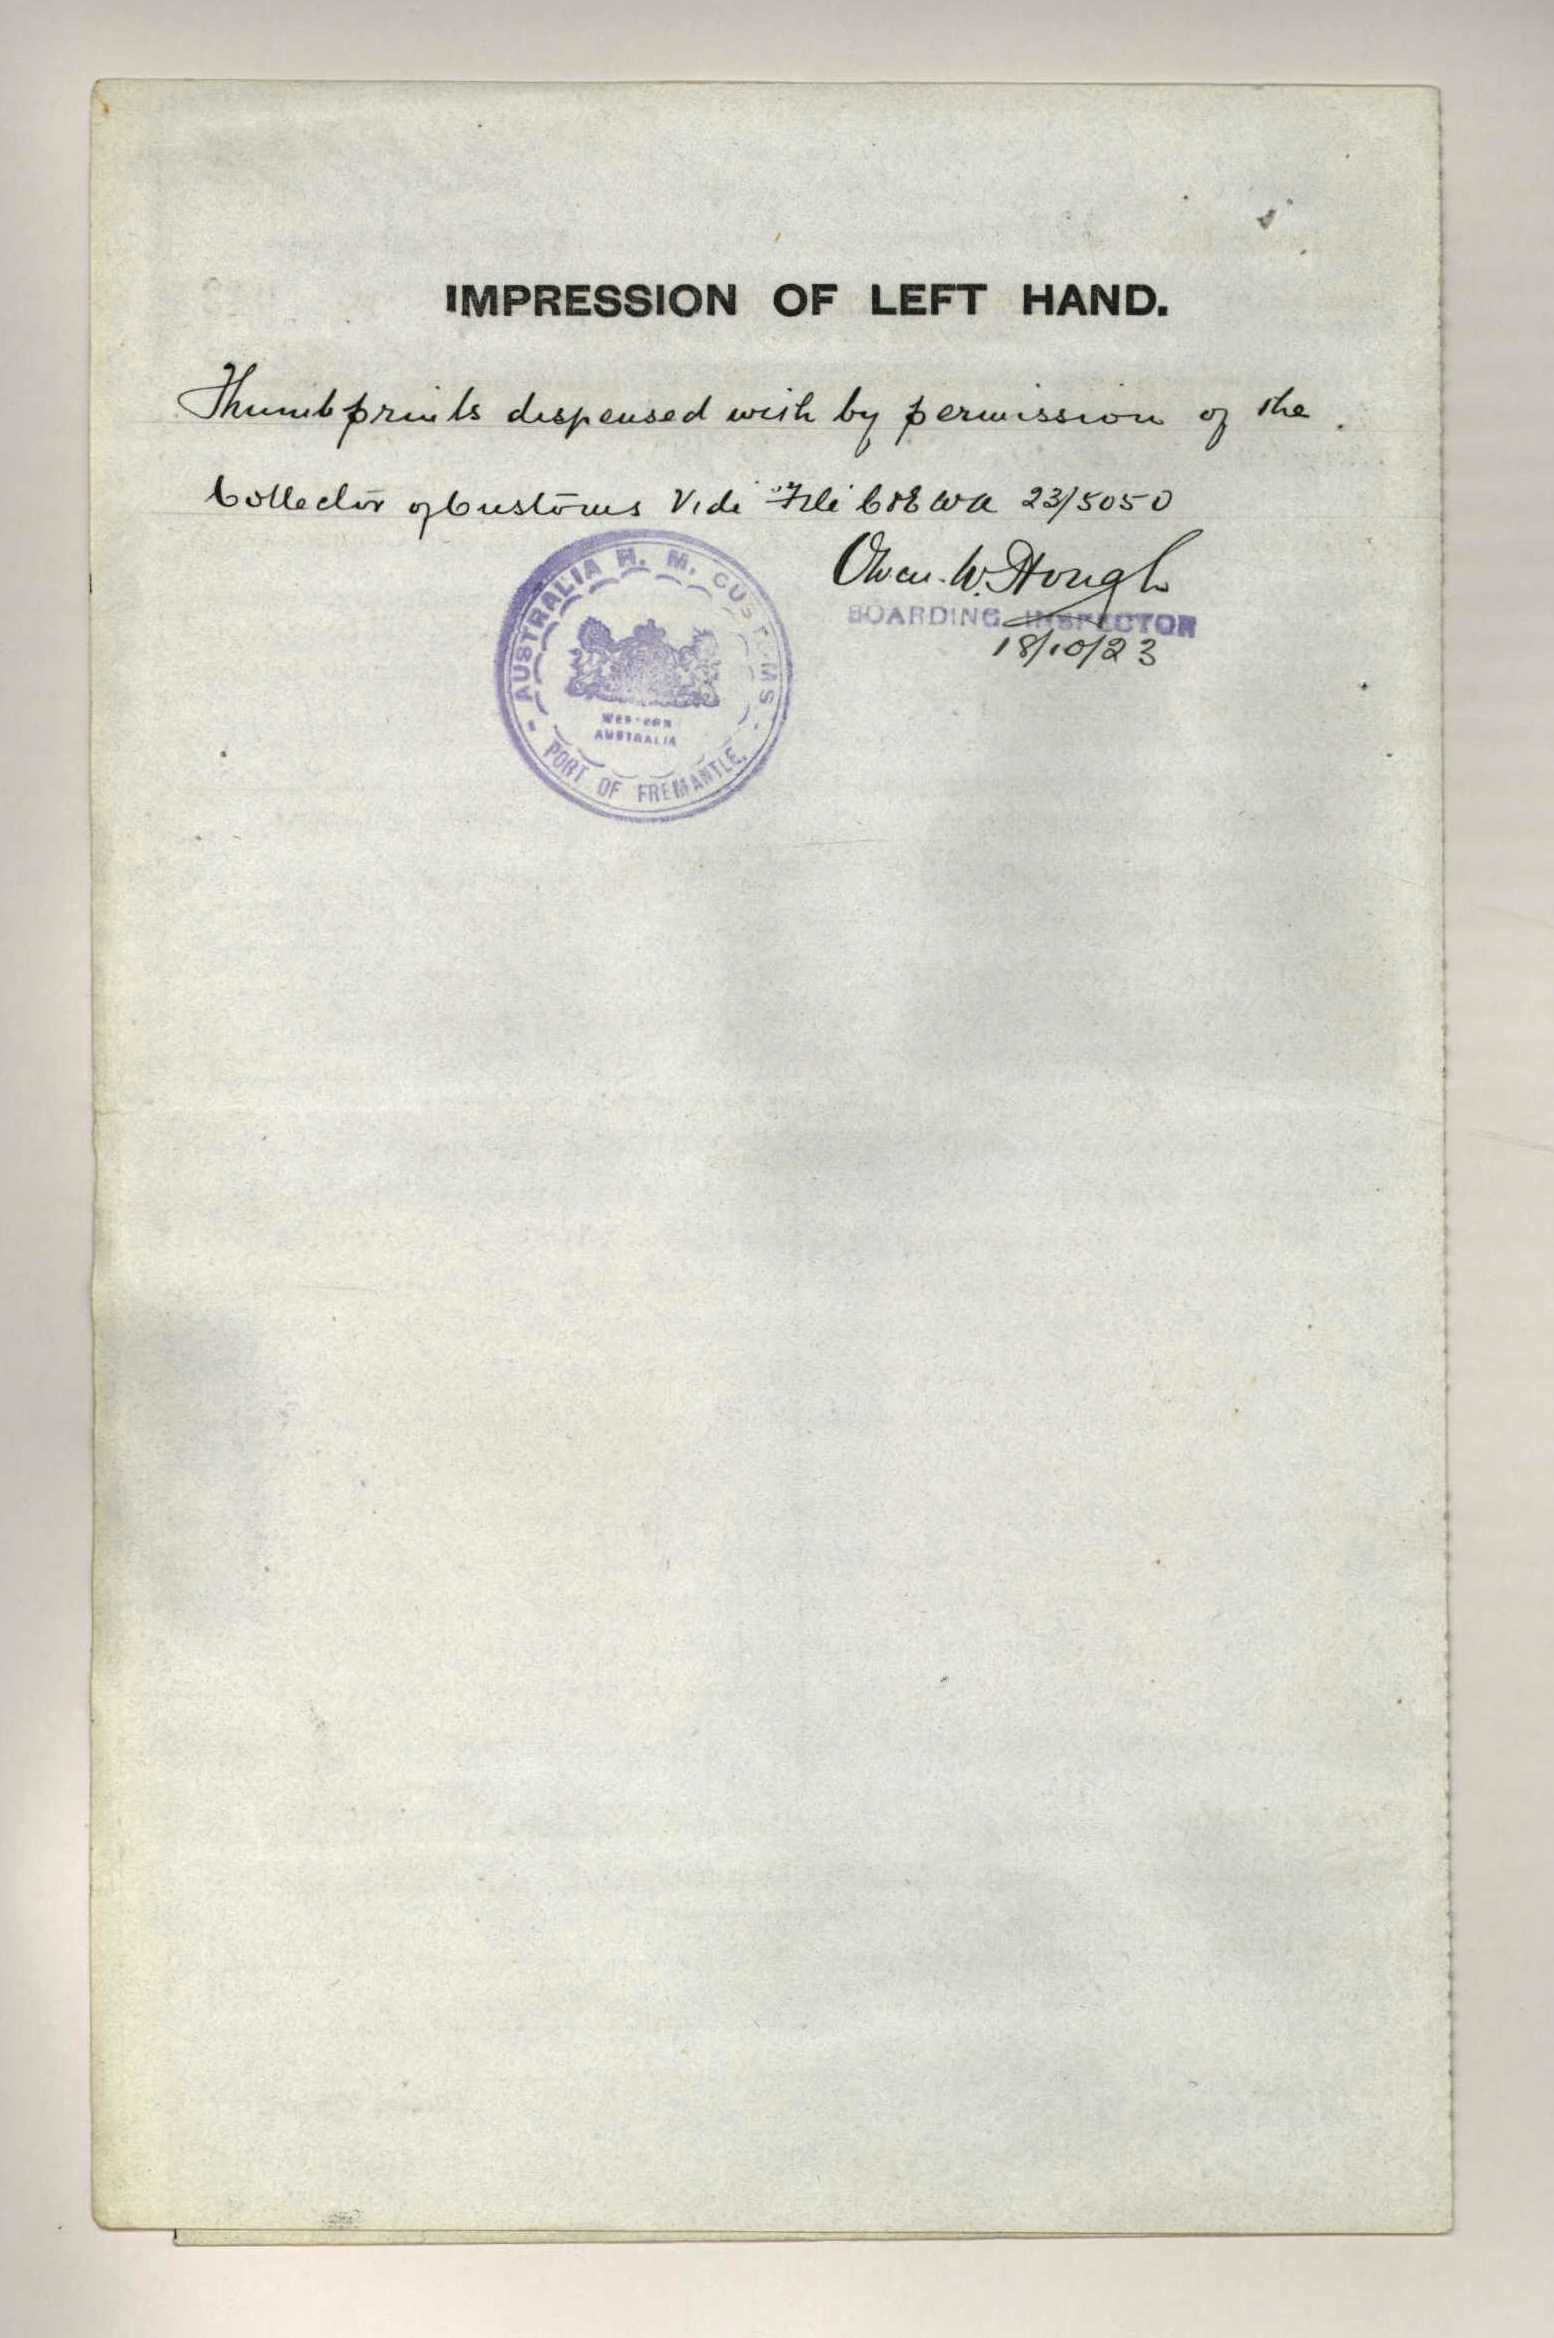 IMPRESSION OF LEFT HAND.
Thumbprints dispensed with by permission of the
Collector of Customs Vide File C&E WA 23/5050
Owen. W. Hough
BOARDING INSPECTOR
18/10/23
AUSTRALIA H. M. CUSTOMS
WESTERN
AUSTRALIA
PORT OF FREMANTLE.